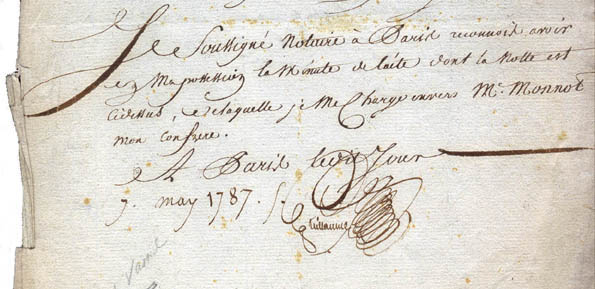 Je Soussigné Notaire à Paris reconnois avoir
en Ma possession la Minute de l'acte dont la Notte est
cidessus, de laquelle je Me Charge envers Mr. Monnot
mon confrere.
A Paris ledit Jour
7. may 1787. /.
Guillaume